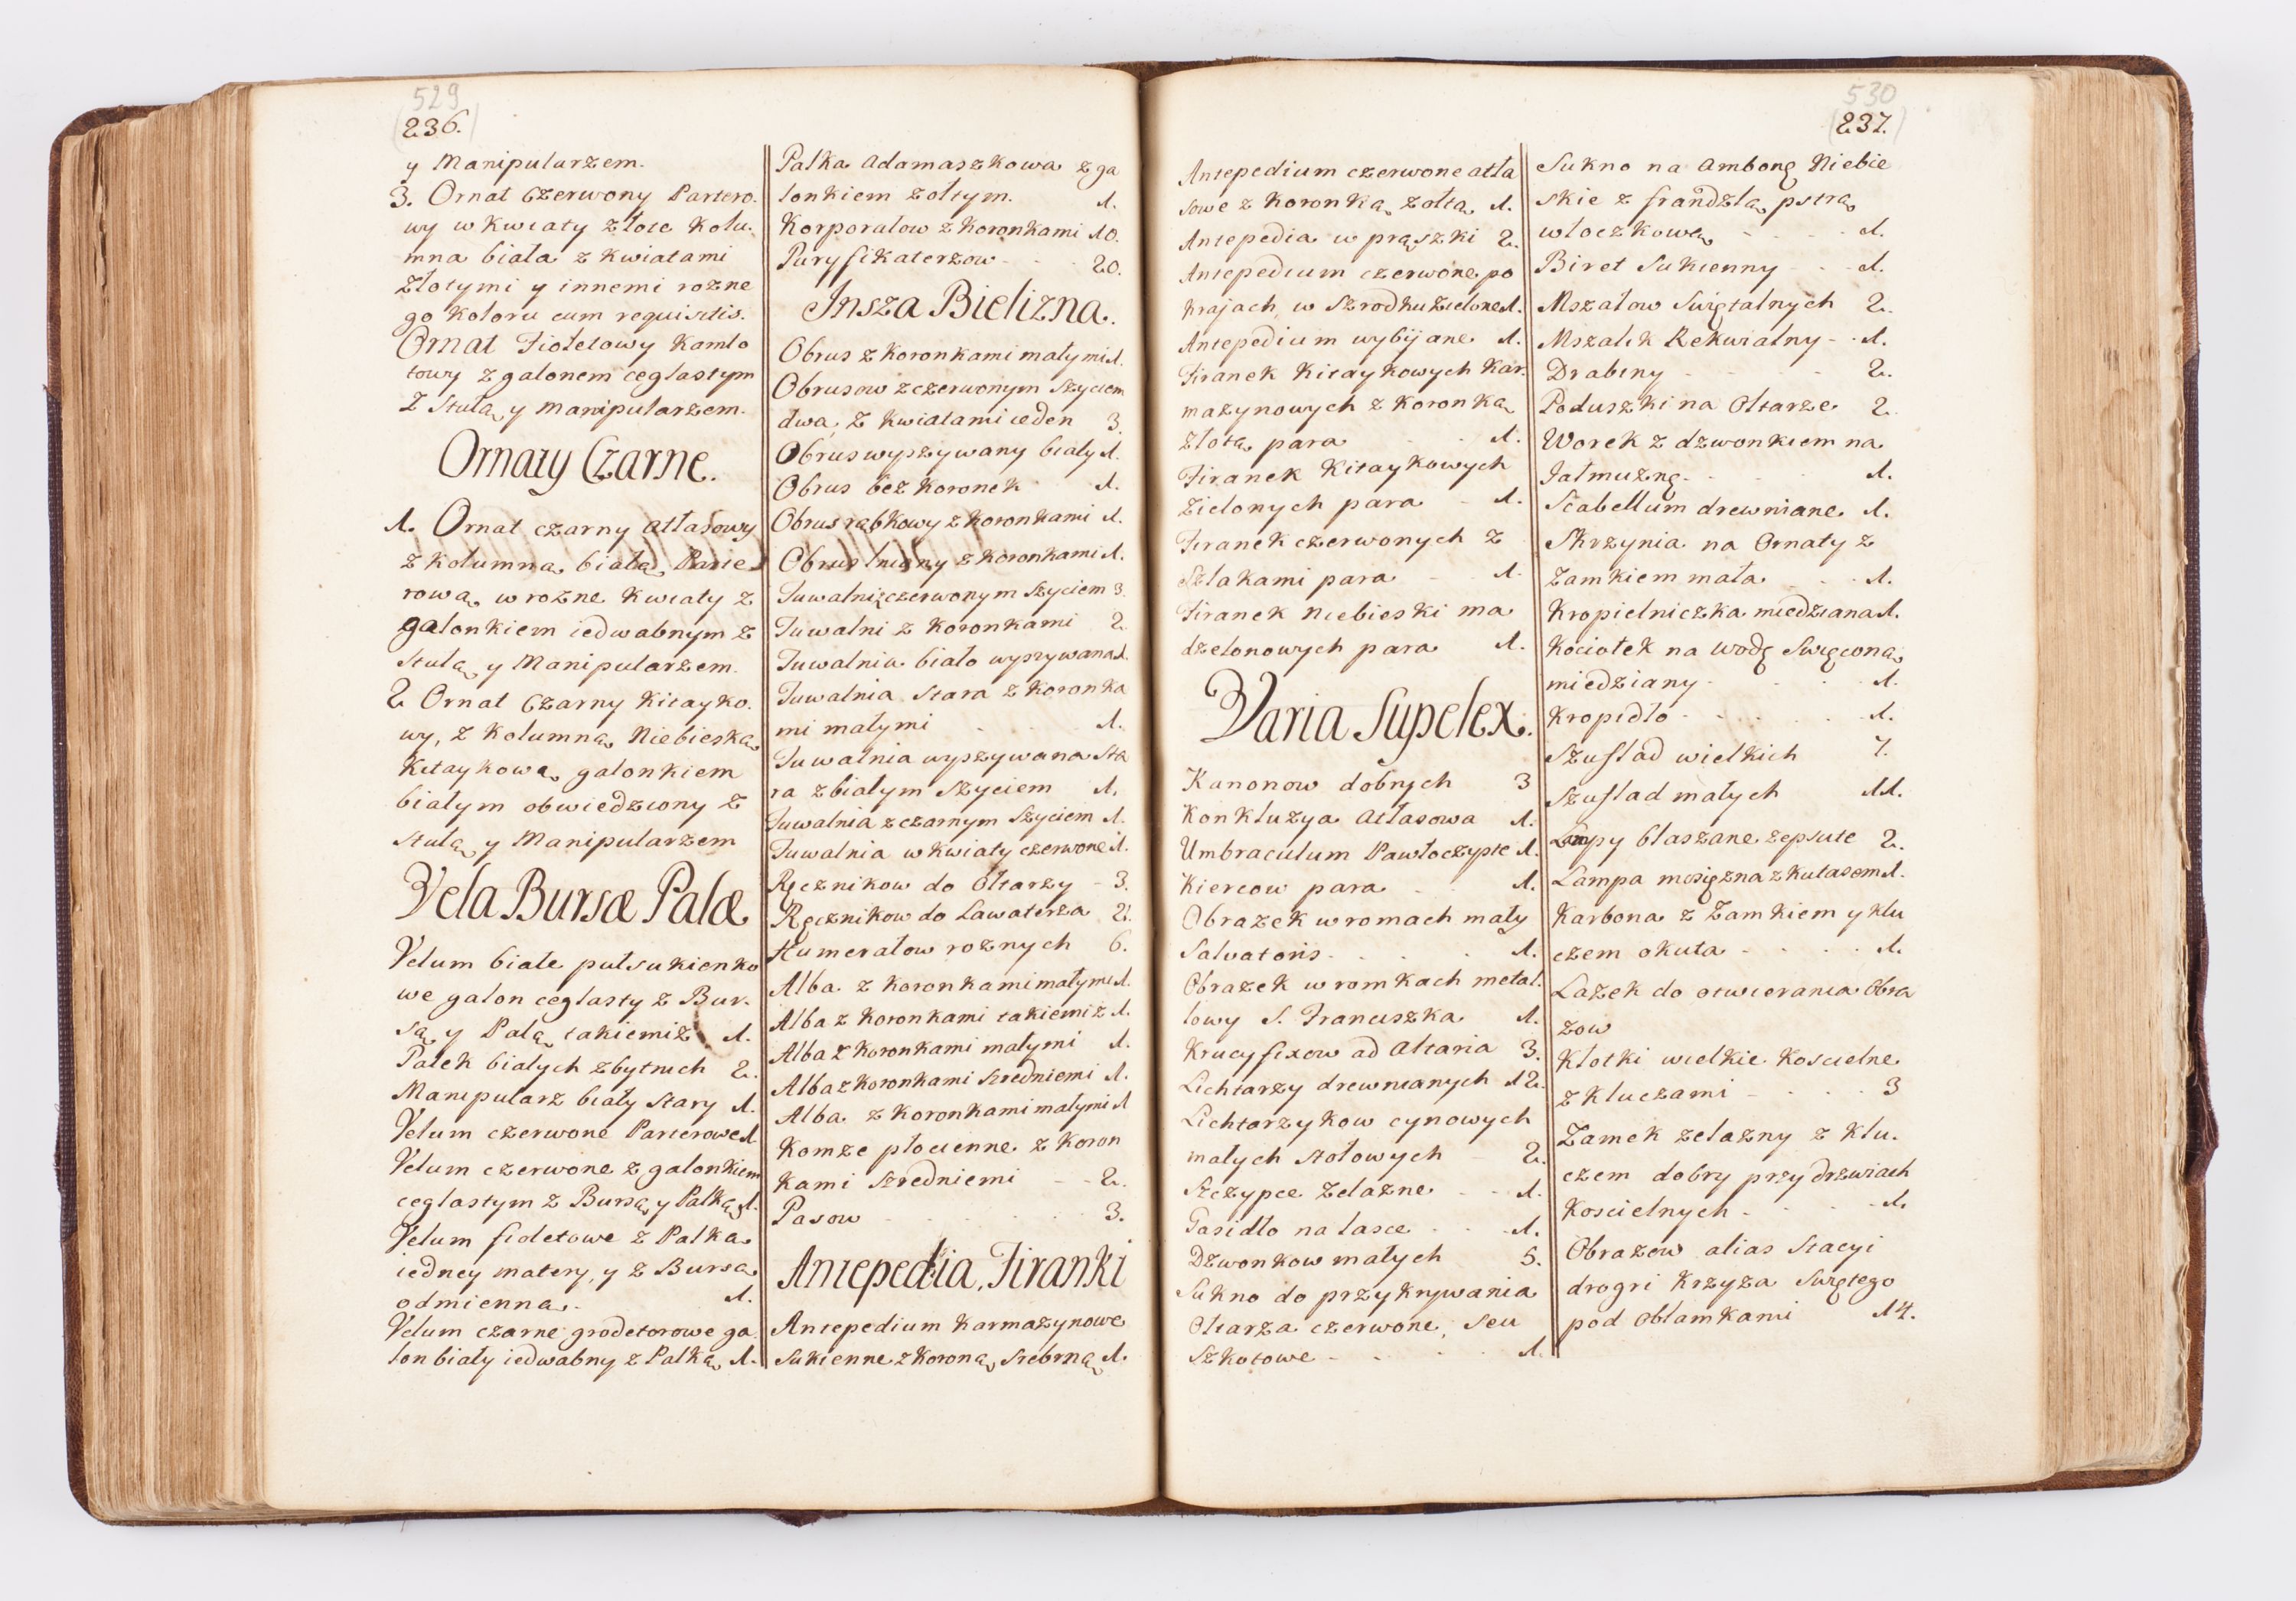 529
236.
y Manipularzem.
3. Ornat Czerwony Partero.
wy w kwiaty złote kolu.
mna biała z kwiatami
złotymi y innemi rozne
go koloru cum requisitis.
Ornat Fioletowy Kamlo
towy z galonem ceglastym
z Stułą y Manipularzem.
Ornaty Czarne.
1. Ornat czarny atłasowy
z kolumną białą Parte
rową w rozne kwiaty z
galonkiem iedwabnym z
stułą y Manipularzem.
2 Ornat Czarny Kitayko.
wy, z kolumną Niebieską
Kitaykową galonkiem
białym obwiedziony z
stułą y Manipularzem
Vela Bursæ Palæ
Velum białe pułsukienko
we galon ceglasty z Bur.
są y Palą takiemiz 1.
Palek białych zbytnich 2.
Manipularz biały stary 1.
Velum czerwone Parterowe 1
Velum czerwone z galonkiem
ceglastym z Bursą y Palką 1.
Velum fioletowe z Palką
iedney matery, y z Bursą
odmienną. 1.
Velum czarne grodetorowe ga
lon biały iedwabny z Palką 1.
Palka Adamaszkowa z ga
lonkiem zołtym. 1.
Korporałow z koronkami 10.
Puryfikaterzow - - 20.
Insza Bielizna.
Obrus z koronkami małymi 1.
Obrusow z czerwonym szyciem
dwa, z kwiatami ieden 3.
Obrus wyszywany biały 1.
Obrus bez koronek 1.
Obrus rąbkowy z koronkami 1.
Obrus lniany z koronkami 1.
Tuwalni z czerwonym szyciem 3.
Tuwalni z koronkami 2.
Tuwalnia biało wyszywana 1.
Tuwalnia stara z koronka
mi małymi - - 1.
Tuwalnia wyszywana sta
ra z białym szyciem 1.
Tuwalnia z czarnym szyciem 1.
Tuwalnia w kwiaty czerwone 1.
Ręcznikow do Ołtarzy - 3.
Ręcznikow do Lawaterza 2.
Humerałow roznych 6.
Alba z koronkami małymi 1.
Alba z koronkami takiemiz 1.
Alba z koronkami małymi 1.
Alba z koronkami srzedniemi 1.
Alba z koronkami małymi 1
Komze płocienne z koron
kami szredniemi - - 2.
Pasow - - - - 3.
Antepedia, Firanki
Antepedium karmazynowe
sukienne z koroną srebrną 1.
530
237.
Antepedium czerwone atła
sowe z koronką zołtą 1.
Antepedia w prąszki 2.
Antepedium czerwone po
krajach, w szrodku zielone 1.
Antepedium wybijane 1.
Firanek Kitaykowych Kar.
mazynowych z koronką
złotą para - - 1.
Firanek Kitaykowych
zielonych para - 1.
Firanek czerwonych z
szlakami para - 1.
Firanek Niebieski ma
dzelonowych para 1.
Varia Supelex.
Kanonow dobrych 3
Konkluzya Atłasowa 1.
Umbraculum Pawłoczyste 1.
Kiercow para - 1.
Obrazek w romach mały
Salvatoris - - - 1.
Obrazek w romkach metal.
lowy S. Franciszka 1.
Krucyfixow ad Altaria 3.
Lichtarzy drewnianych 12.
Lichtarzykow cynowych
małych stołowych - 2.
Szczypce Zelazne - - 1.
Gasidło na lasce - - 1.
Dzwonkow małych 5.
Sukno do przykrywania
Ołtarza czerwone, seu
szkotowe - - - 1.
Sukno na Ambonę Niebie
skie z frandzlą pstrą
włoczkową - - - 1.
Biret Sukienny - - 1.
Mszałow Swiętalnych 2.
Mszalik Rekwialny - - 1.
Drabiny - - 2.
Poduszki na Ołtarze 2.
Worek z dzwonkiem na
Jałmuznę - - - 1.
Scabellum drewniane 1.
Skrzynia na Ornaty z
Zamkiem mała - - 1.
Kropielniczka miedziana 1.
Kociołek na wodę Swięconą
miedziany - - - 1.
Kropidło - - - - 1.
Szuflad wielkich 7.
Szuflad małych 11.
Lampy blaszane zepsute 2.
Lampa mosięzna z kutasem 1.
Karbona z Zamkiem y klu
czem okuta - - - 1.
Lazek do otwierania Obra
zow
Kłotki wielkie Koscielne
z kluczami - - - 3
Zamek zelazny z klu.
czem dobry przy drzwiach
Koscielnych - - - 1.
Obrazow alias Stacyi
drogi Krzyza Swiętego
pod obłamkami 14.